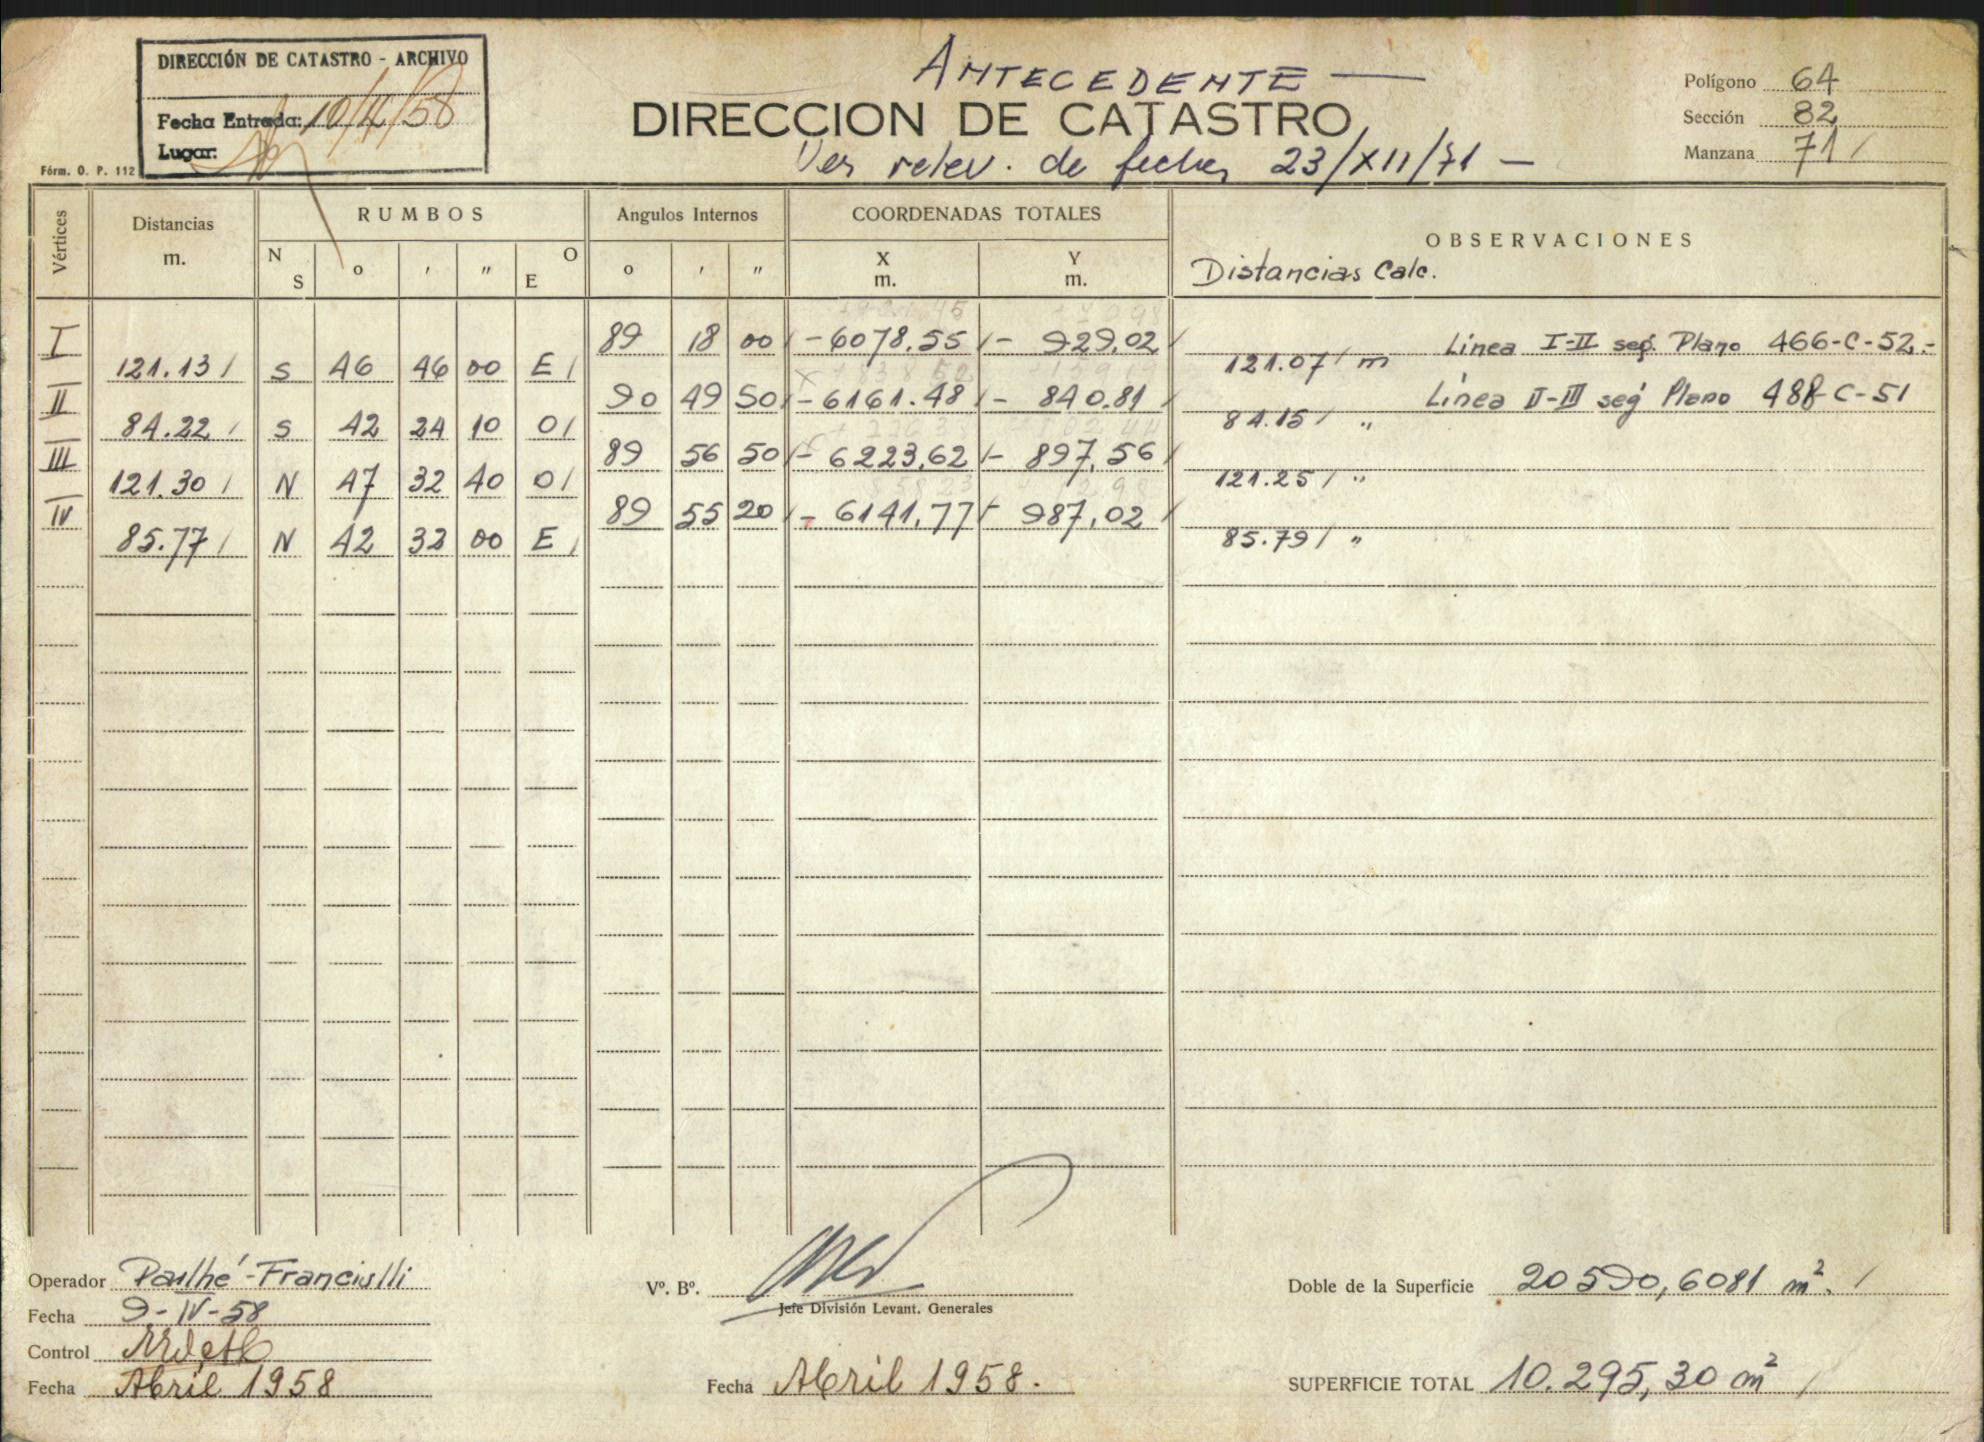 DIRECCIÓN DE CATASTRO - ARCHIVO
Fecha Entrada: 10/4/58
Lugar:
Fórm. O. P. 112
ANTECEDENTE —
DIRECCION DE CATASTRO
Ver relev. de fecha 23/XII/71 —
Polígono 64
Sección 82
Manzana 71 /
Vértices
Distancias
m.
RUMBOS
N S o ' " O E
Angulos Internos
o ' "
COORDENADAS TOTALES
X
m.
Y
m.
OBSERVACIONES
Distancias Calc.
I 89 18 00 / - 6078.55 / - 929.02 / Linea I-II seg. Plano 466-C-52.-
121.13 / S 46 46 00 E / 121.07 / m
II 90 49 50 / - 6161.48 / - 840.81 / Linea II-III seg Plano 488-C-51
84.22 / S 42 24 10 O / 84.15 / "
III 89 56 50 / - 6223,62 / - 897,56 /
121.30 / N 47 32 40 O / 121.25 / "
IV 89 55 20 / - 6141,77 / - 987,02 /
85.77 / N 42 32 00 E / 85.79 / "
Operador Pailhé-Franciulli
Fecha 9-IV-58
Control
Fecha Abril 1958
Vº. Bº.
Jefe División Levant. Generales
Fecha Abril 1958.
Doble de la Superficie 20590,6081 m². /
SUPERFICIE TOTAL 10.295,30 m² /